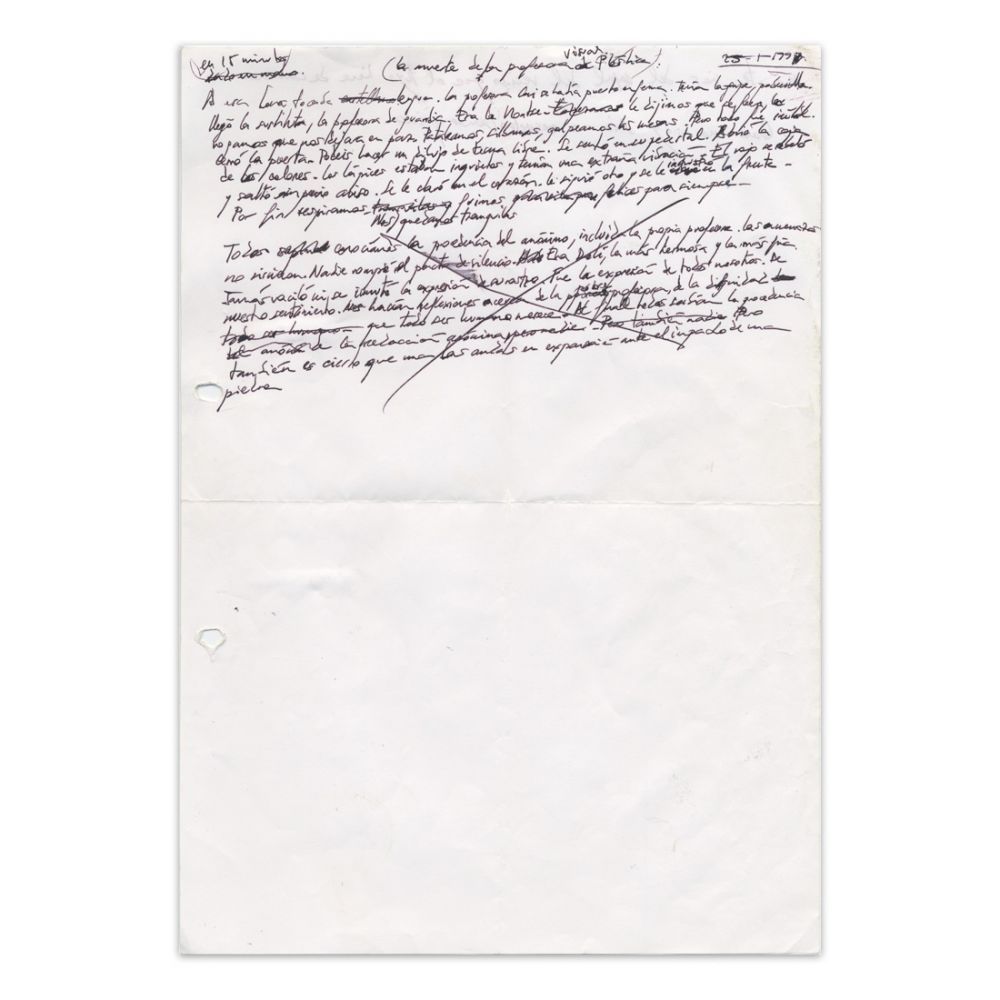 en 15 minutos
(La muerte de la profesora de Plástica)
Visual
25-1-1997
A esa hora tocaba lengua. La profesora se había puesto enferma. Tenía la gripe, pobrecilla.
llegó la sustituta, la profesora de guardia. Era la Montse. le dijimos que se fuera, le
rogamos que nos dejara en paz. Pataleamos, chillamos, golpeamos las mesas. Pero todo fue inútil.
Cerró la puerta. Podéis hacer un dibujo de tema libre. Se sentó en su pedestal. Abrió la caja
de los colores. Los lápices estaban inquietos y tenían una extraña vibración. El rojo se
y saltó sin previo aviso. Se le clavó en el corazón. Le siguió otro y se le incrustó en la frente.
Por fin respiramos, y fuimos felices para siempre.
Nos quedamos tranquilos
Todos conocíamos la procedencia del anónimo, incluida la propia profesora. Las amenazas
no incidían. Nadie rompió el pacto de silencio. Era Doli, la más hermosa y la más fría.
Jamás vaciló ni se inmutó la expresión de su rostro. Fue la expresión de todos nosotros. De
nuestro sentimiento. Nos hacían reflexiones acerca de la pobre profesora, de la dignidad
que todo ser humano merece. Al final todos sabían la procedencia
de la redacción anónima pero nadie. Pero también nadie Pero
también es cierto que unas las ondas en expansión ante el impacto de una
piedra